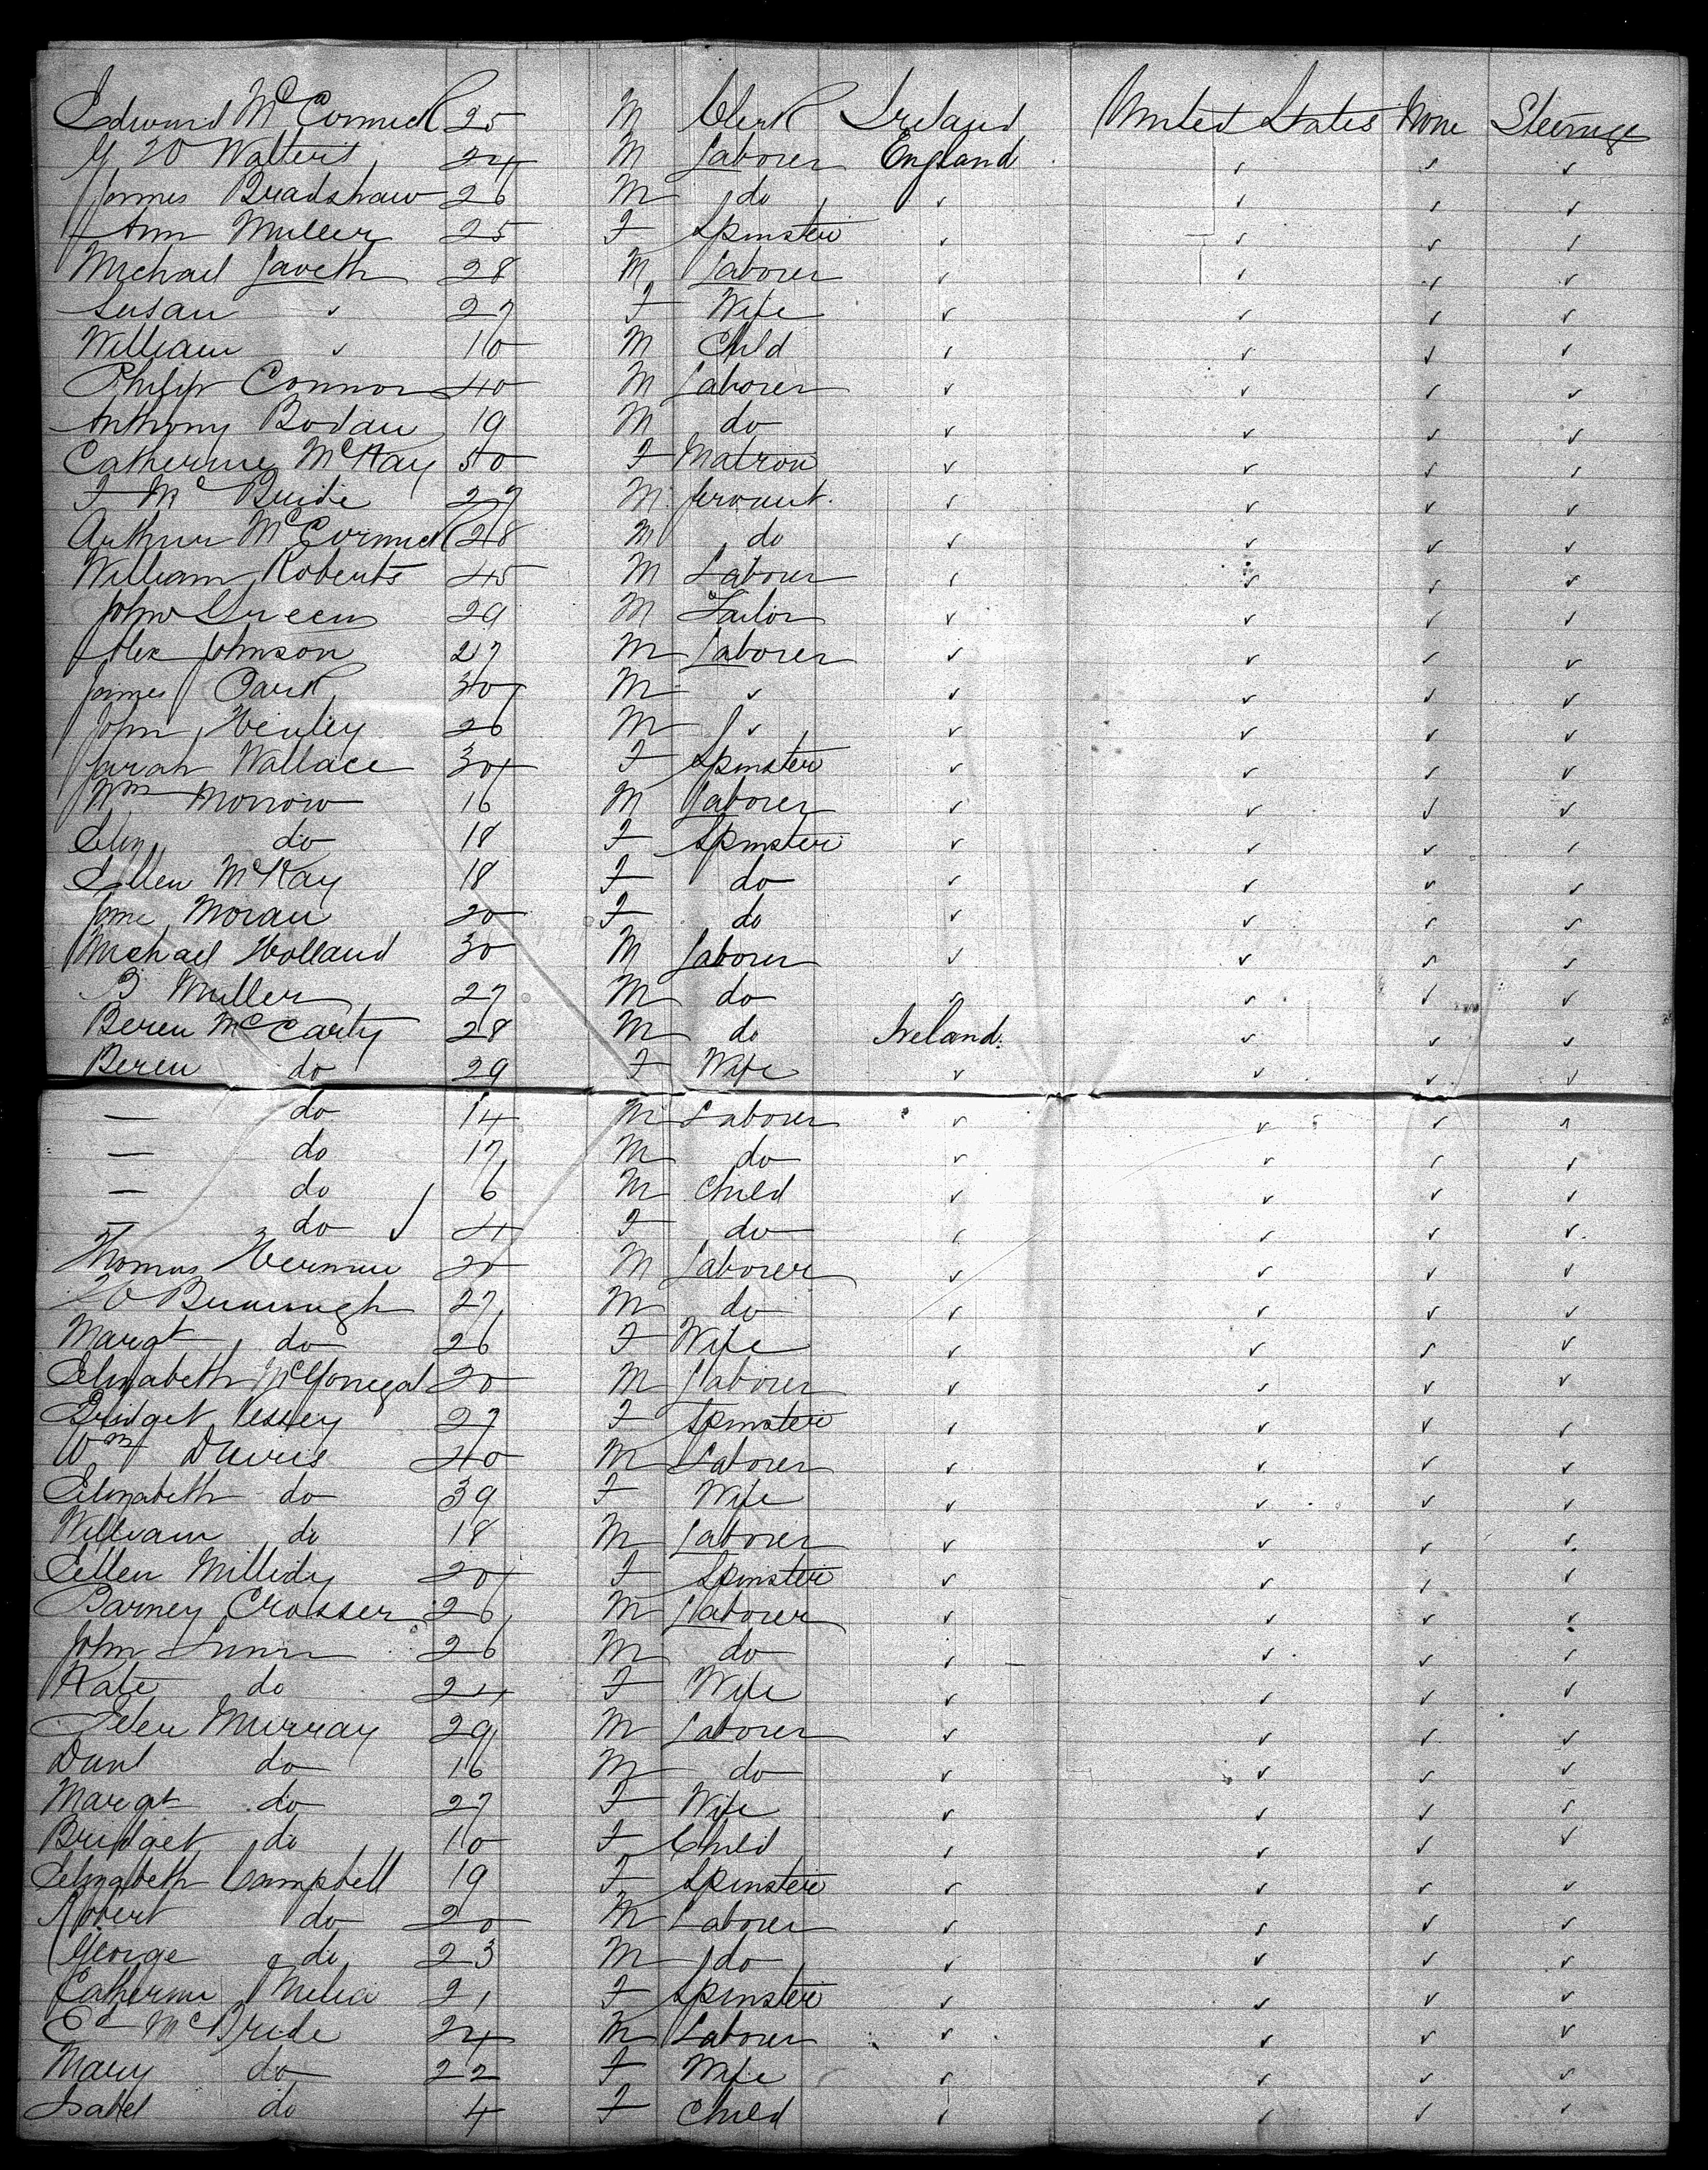 Edward McCormick 25 M Clerk Ireland United States None Steerage
Walters 24 M Laborer England ✓ ✓ ✓
James Bradshaw 26 M do ✓ ✓ ✓ ✓
Ann Muller 25 F Spinster ✓ ✓ ✓ ✓
Michael Laveth 28 M Laborer ✓ ✓ ✓ ✓
Susan ✓ 27 F Wife ✓ ✓ ✓ ✓
William ✓ 10 M Child ✓ ✓ ✓ ✓
Philip Connor 40 M Laborer ✓ ✓ ✓ ✓
Anthony Bodau 19 M do ✓ ✓ ✓ ✓
Catherine McKay 50 F Matron ✓ ✓ ✓ ✓
F Mc Bride 27 M Servant ✓ ✓ ✓ ✓
Arthur McCormick 28 M do ✓ ✓ ✓ ✓
William Roberts 45 M Laborer ✓ ✓ ✓ ✓
John Green 29 M Tailor ✓ ✓ ✓ ✓
Alex Johnson 27 M Laborer ✓ ✓ ✓ ✓
James Park 30 M ✓ ✓ ✓ ✓ ✓
John Henley 26 M ✓ ✓ ✓ ✓ ✓
Sarah Wallace 30 F Spinster ✓ ✓ ✓ ✓
Wm Morrow 16 M Laborer ✓ ✓ ✓ ✓
Eliz do 18 F Spinster ✓ ✓ ✓ ✓
Ellen McKay 18 F do ✓ ✓ ✓ ✓
Jane Moran 20 F do ✓ ✓ ✓ ✓
Michael Holland 30 M Laborer ✓ ✓ ✓ ✓
B Muller 27 M do ✓ ✓ ✓ ✓
Beren McCarty 28 M do Ireland. ✓ ✓ ✓
Beren do 29 F Wife ✓ ✓ ✓ ✓
— do 14 M Laborer ✓ ✓ ✓ ✓
— do 17 M do ✓ ✓ ✓ ✓
— do 6 M Child ✓ ✓ ✓ ✓
— do 4 F do ✓ ✓ ✓ ✓
Thomas 20 M Laborer ✓ ✓ ✓ ✓
27 M do ✓ ✓ ✓ ✓
Margt do 26 F Wife ✓ ✓ ✓ ✓
Elizabeth McGonegal 20 M Laborer ✓ ✓ ✓ ✓
Bridget 27 F Spinster ✓ ✓ ✓ ✓
Wm Davis 40 M Laborer ✓ ✓ ✓ ✓
Elizabeth do 39 F Wife ✓ ✓ ✓ ✓
William do 18 M Laborer ✓ ✓ ✓ ✓
Ellen Millidy 20 F Spinster ✓ ✓ ✓ ✓
Barney Crosser 26 M Laborer ✓ ✓ ✓ ✓
John Lunn 26 M do ✓ ✓ ✓ ✓
Kate do 24 F Wife ✓ ✓ ✓ ✓
Peter Murray 29 M Laborer ✓ ✓ ✓ ✓
Danl do 16 M do ✓ ✓ ✓ ✓
Margt do 27 F Wife ✓ ✓ ✓ ✓
Bridget do 10 F Child ✓ ✓ ✓ ✓
Elizabeth Campbell 19 F Spinster ✓ ✓ ✓ ✓
Robert do 20 M Laborer ✓ ✓ ✓ ✓
George do 23 M do ✓ ✓ ✓ ✓
Catherine Melia 21 F Spinster ✓ ✓ ✓ ✓
Ed McBride 24 M Laborer ✓ ✓ ✓ ✓
Mary do 22 F Wife ✓ ✓ ✓ ✓
Isabel do 4 F Child ✓ ✓ ✓ ✓